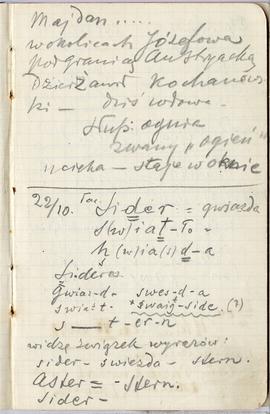 Majdan .....
w okolicach Józefowa
pod granicą Austryacką
Dzierżawł Kochanows
ki – dziś wdowa.
słup ognia
zwany „ogień”
ucieka – staje w oknie
22/10. Sider = gwiazda
s(w)iat-To-
h(w)ia(s)d-a
Sideres
Gwias-d- swes-d-a
swiat- *swaig-side. (?)
s___t-er-n
widzę związek wyrazów:
sider - swiezda - stern.
Aster = -stern.
sider -